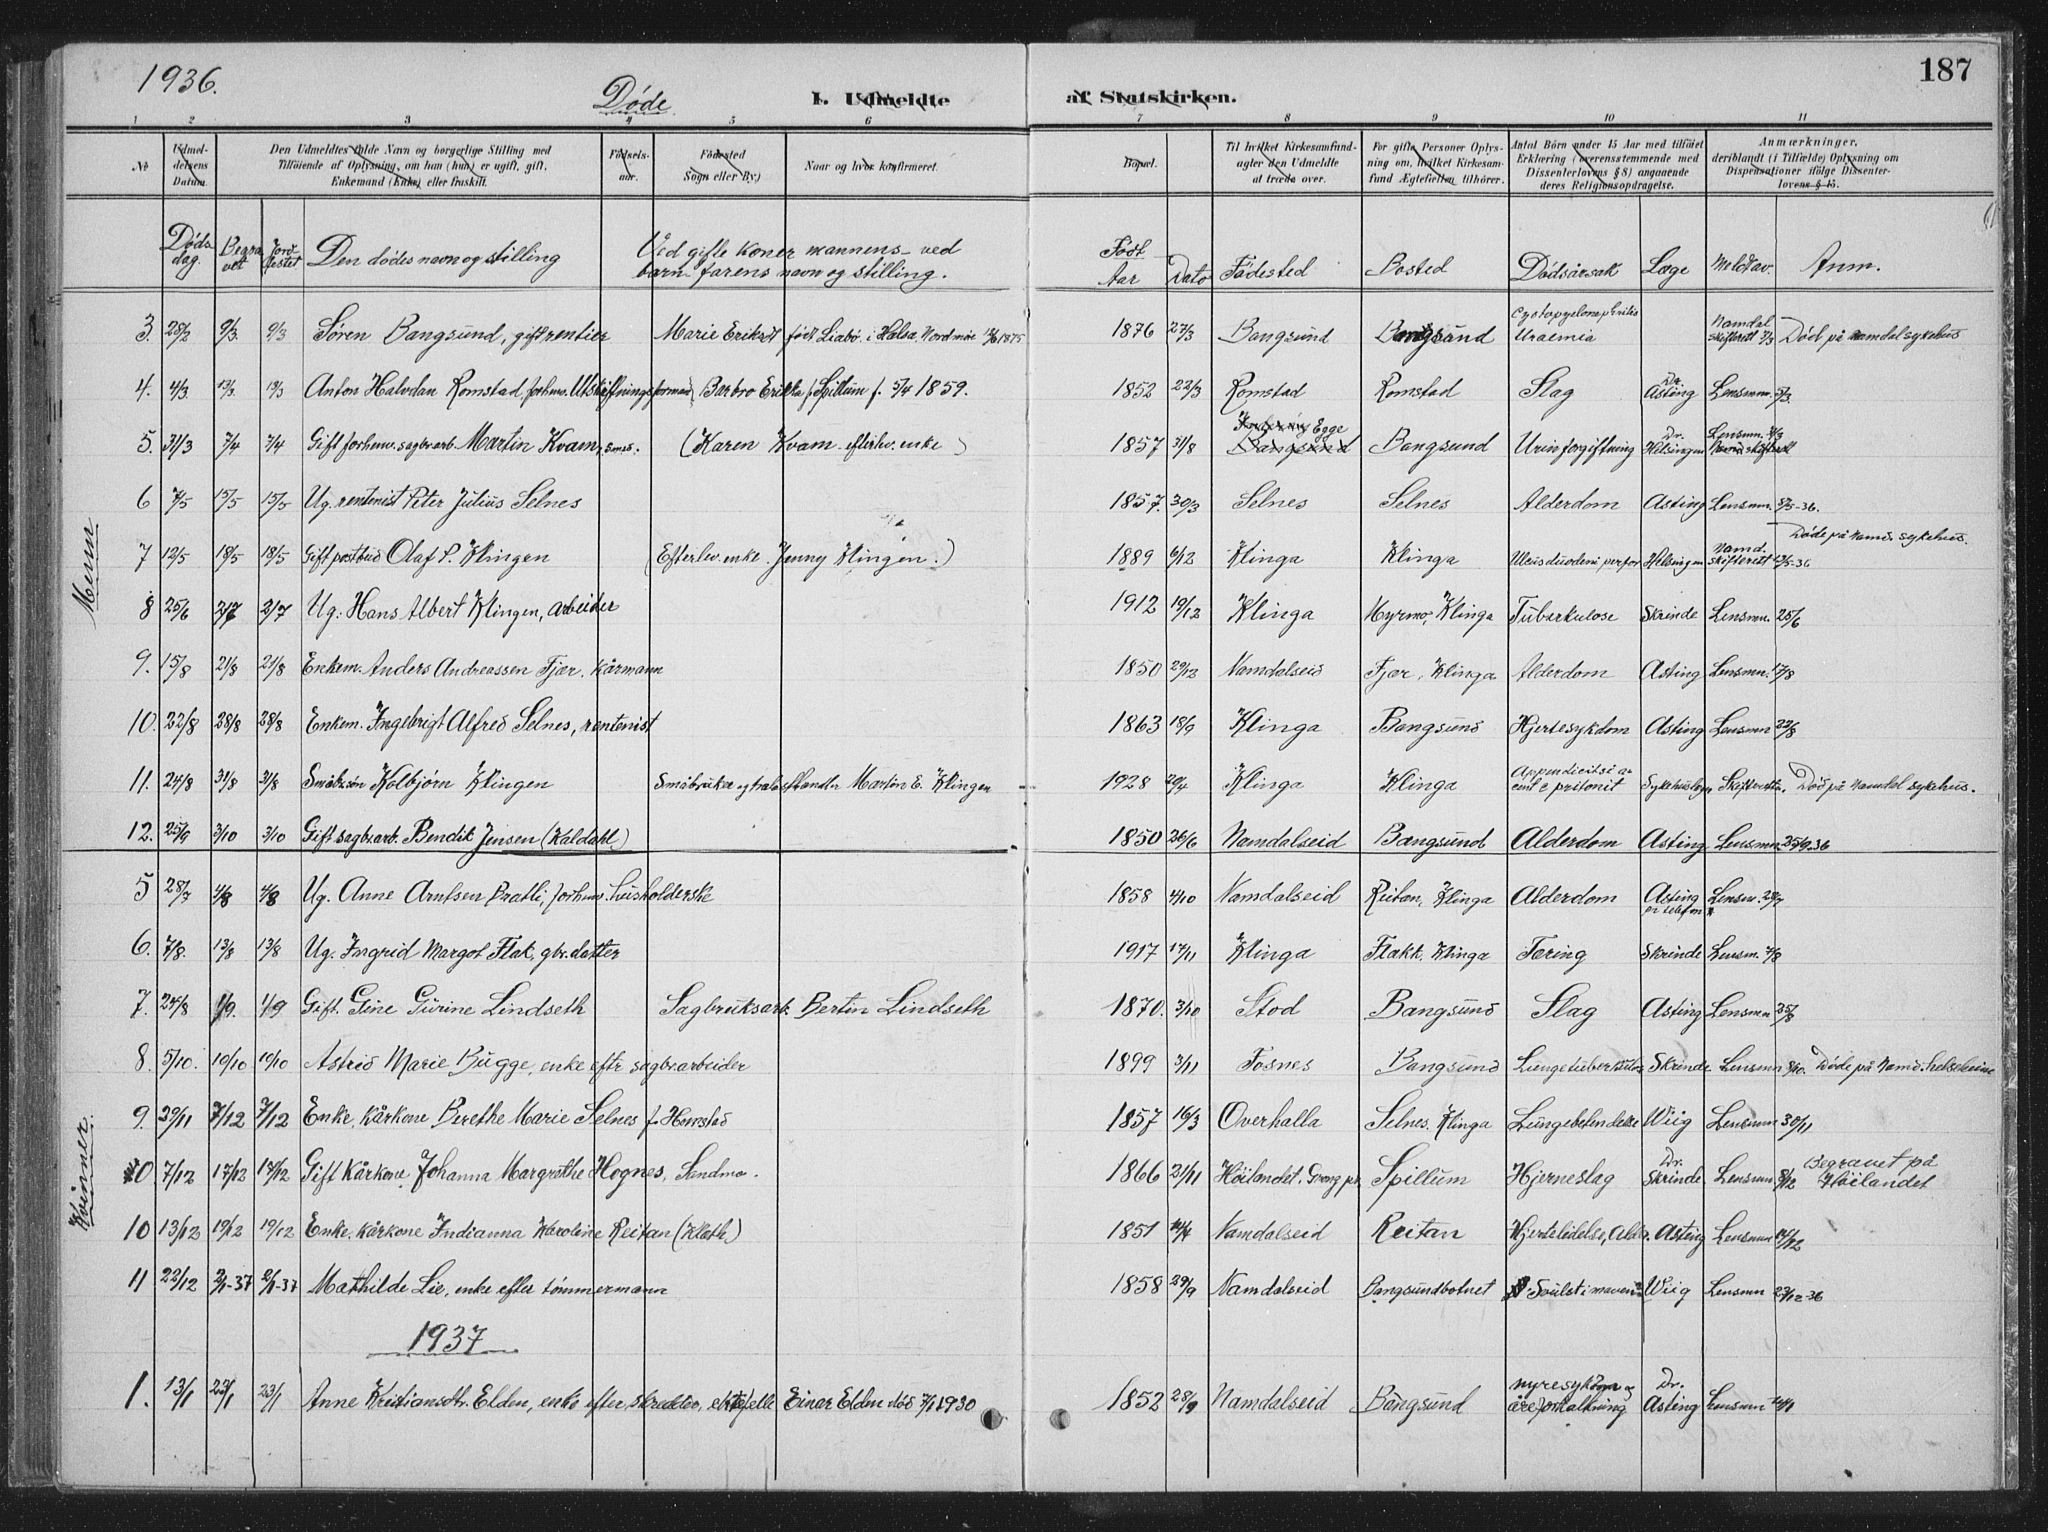 1936.
187
Døde
I. Udmeldte
af Statskirken.
1 2 3 4 5 6 7 8 9 10 11
No
Udmel-
delsens
Datum.
Den Udmeldtes fulde Navn og borgerlige Stilling med
Tilføiende af Oplysning, om han (hun) er ugift, gift,
Enkemand (Enke) eller fraskilt.
Fødsels-
aar.
Fødested
Sogn eller By.)
Naar og hvor konfirmeret.
Bopæl.
Til hvilket Kirkesamfund-
agter den Udmeldte
at træde over.
For gifte Personer Oplys-
ning om, hvilket Kirkesam-
fund Ægtefællen tilhører.
Antal Børn under 15 Aar med tilføiet
Erklæring (overensstemmende med
Dissenterlovens § 8) angaaende
deres Religionsopdragelse.
Anmærkninger,
deriblandt (i Tilfælde) Oplysning om
Dispensationer ifølge Dissenter-
lovens § 15.
Døds-
dag.
Begra-
vet
Jord-
festet
Den dødes navn og stilling
Ved gifte koner mannens - ved
barn farens navn og stilling.
Født
Aar Dato Fødested Bosted Dødsårsak Læge Meldt av. Anm.
Menn
3. 28/2 9/3. 9/3 Søren Bangsund, gift rentier Marie Eriksdt født Liabø i Halsa, Nordmøre 1875 1876 27/3 Bangsund Bangsund Cystopyelonephritis Uraemia Namdal skifterett Død på Namdal sykehus
4. 4/3 13/3. 13/3 Anton Halvdan Romstad forhenv. Utskiftningsformand, Barbro Erikka f. Spillum f. 5/4 1859. 1852 22/3 Romstad Romstad Slag Dr. Asting Lensmn. 5/3.
5. 31/3 7/4 7/4 Gift forhenv. sagbr.arb. Martin Kvam, (Karen Kvam efterlev. enke) 1857 31/8 Egge Bangsund Bangsund Urinforgiftning Dr. Helsingen Lensmn.
6 7/5 15/5 15/5 Ug. rentenist Peter Julius Selnes 1857. 30/3 Selnes Selnes Alderdom Asting Lensmn. 8/5-36.
7 12/5 18/5 18/5 Gift postbud Olaf P. Klingen (Efterlev. enke Jenny Klingen.) 1889 6/12 Klinga Klinga Ulcus duodeni perfor Helsingen Namd. skifterett Døde på Namd. sykehus.
8 25/6 2/7 2/7 Ug. Hans Albert Klingen, arbeider 1912 19/12 Klinga Myrmo, Klinga Tuberkulose Skrinde Lensmn. 25/6
9. 15/8 21/8 21/8 Enkem. Anders Andreassen Fjær. kårmann 1850 29/12 Namdalseid Fjær, Klinga Alderdom Asting Lensmn. 17/8
10. 22/8 28/8 28/8 Enkem. Ingebrigt Alfred Selnes, rentenist 1863 18/9 Klinga Bangsund Hjertesykdom Asting Lensmn 22/8
11. 24/8 31/8 31/8 Småbr.søn Kolbjørn Klingen Småbruker og trelasthandler Martin E. Klingen 1928 20/4 Klinga Klinga Sykehuslegen Skifteretten. Død på Namdal sykehus.
12. 25/9 3/10 3/10 Gift sagbr.arb. Bendik Jensen (Kaldahl) 1850 26/6 Namdalseid Bangsund Alderdom Asting Lensmn 25/9.36
Kvinner.
5 28/7 4/8 4/8 Ug. Anne Arntsen Bratli, forhenv. husholderske 1858 4/10 Namdalseid Reitan, Klinga Alderdom Asting pr telefon Lensm. 29/7
6. 7/8. 13/8 13/8 Ug. Ingrid Margot Flak, gbr.datter 1917 17/11 Klinga Flakk. Klinga Tæring Skrinde Lensm. 7/8
7. 24/8 1/9. 1/9 Gift. Gine Gurine Lindseth Sagbruksarb. Bertin Lindseth 1870. 3/10 Stod Bangsund Slag Asting Lensmn 25/8
8. 5/10. 10/10 10/10 Astrid Marie Bugge, enke eftr sagbr.arbeider 1899 3/11 Fosnes Bangsund Lungetuberkulose Skrinde Lensmn 8/10. Døde på Namd. helseheim
9. 29/11 7/12 7/12 Enke, kårkone Berethe Marie Selnes f. Homstad 1857 16/3 Overhalla Selnes, Klinga Lungebetendelse Wiig Lensmn 30/11
10 7/12 17/12 17/12 Gift kårkone, Johanna Margrethe Hognes, Sendmo. 1866 21/11 Höilandet, Grong pr. Spillum Hjerneslag Dr. Skrinde Lensmn 8/12 Begravet på Höilandet
10 13/12 19/12 19/12 Enke, kårkone Indianna Karoline Reitan 1851 Namdalseid Reitan Hjertelidelse, Alder. Asting Lensmn 14/12
11 22/12 2/1-37 2/1-37 Mathilde Lie, enke efter tømmermann 1858 29/9 Namdalseid Bangsundbotnet Svulst i maven Wiig Lensmn 23/12-36
1937
1. 13/1 23/1 23/1 Anne Kristiansdtr. Elden, enke efter skredder, ektefelle Einar Elden død 7/1 1930 1852 28/9 Namdalseid Bangsund nyresykdom og åreforkalkning Dr. Asting Lensmn 14/1